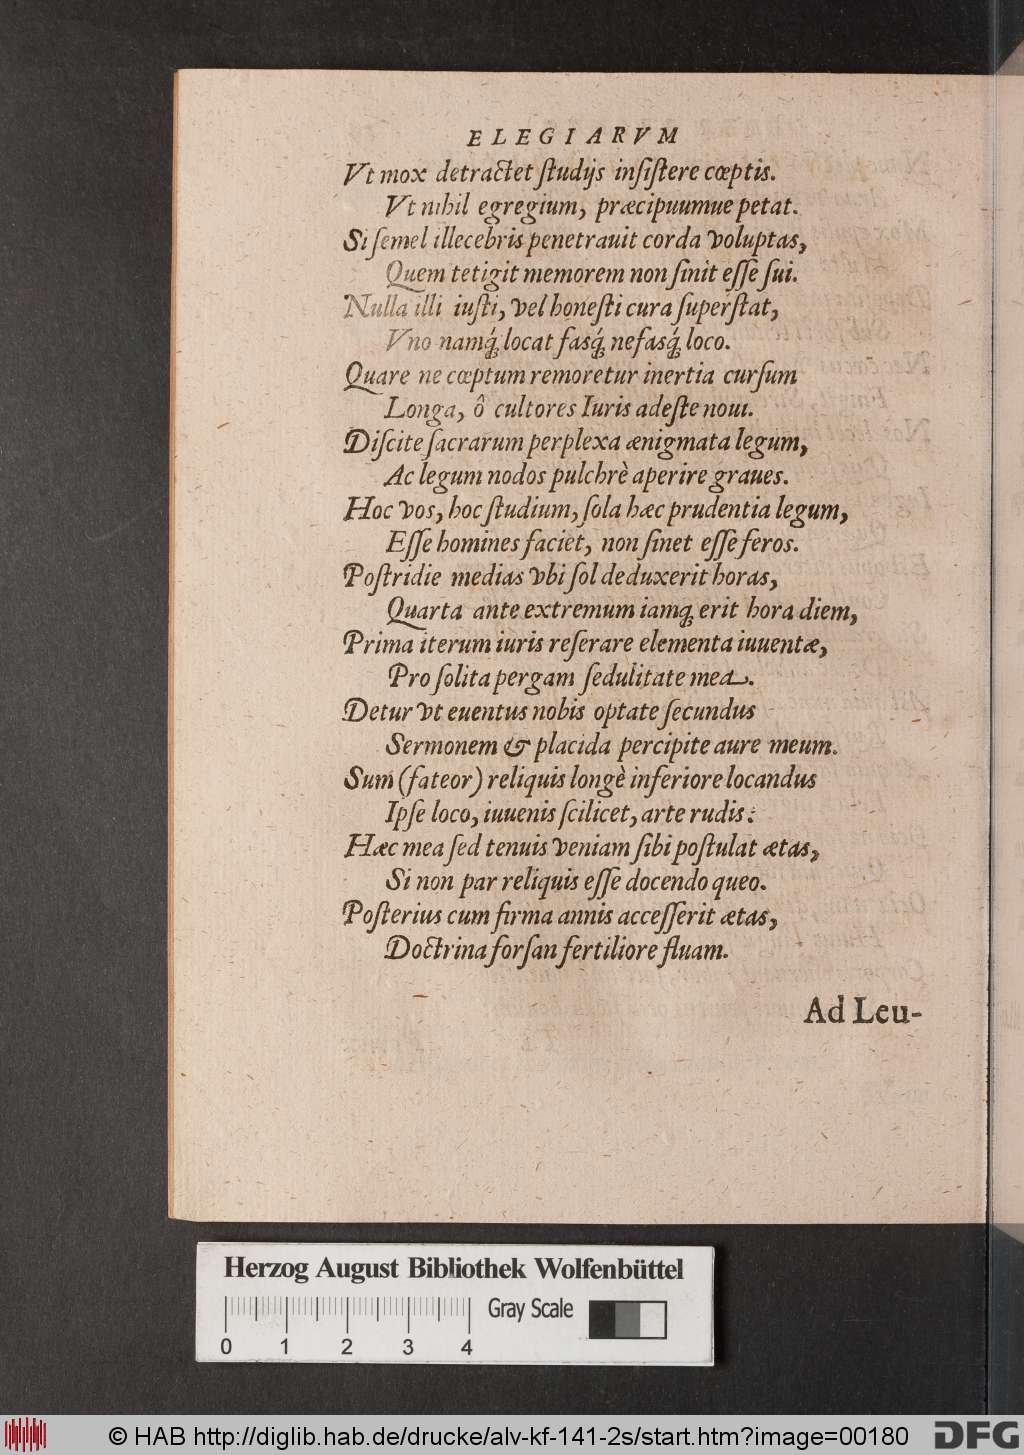 ELEGIARVM
Vt mox detractet ſtudijs inſiſtere cœptis.
Vt nihil egregium, præcipuumue petat.
Si ſemel illecebris penetrauit corda voluptas,
Quem tetigit memorem non ſinit eſſe ſui.
Nulla illi iuſti, vel honeſti cura ſuperſtat,
Vno namq́; locat faſq́; nefasq́; loco.
Quare ne cœptum remoretur inertia curſum
Longa, ô cultores Iuris adeſte noui.
Diſcite ſacrarum perplexa ænigmata legum,
Ac legum nodos pulchrè aperire graues.
Hoc vos, hoc ſtudium, ſola hæc prudentia legum,
Eſſe homines faciet, non ſinet eſſe feros.
Poſtridie medias vbi ſol deduxerit horas,
Quarta ante extremum iamq; erit hora diem,
Prima iterum iuris reſerare elementa iuuentæ,
Pro ſolita pergam ſedulitate mea.
Detur vt euentus nobis optate ſecundus
Sermonem & placida percipite aure meum.
Sum (fateor) reliquis longè inferiore locandus
Ipſe loco, iuuenis ſcilicet, arte rudis:
Hæc mea ſed tenuis veniam ſibi poſtulat ætas,
Si non par reliquis eſſe docendo queo.
Poſterius cum firma annis acceſſerit ætas,
Doctrina forſan fertiliore fluam.
Ad Leu-
Herzog August Bibliothek Wolfenbüttel
Gray Scale
0 1 2 3 4
© HAB http://diglib.hab.de/drucke/alv-kf-141-2s/start.htm?image=00180
DFG